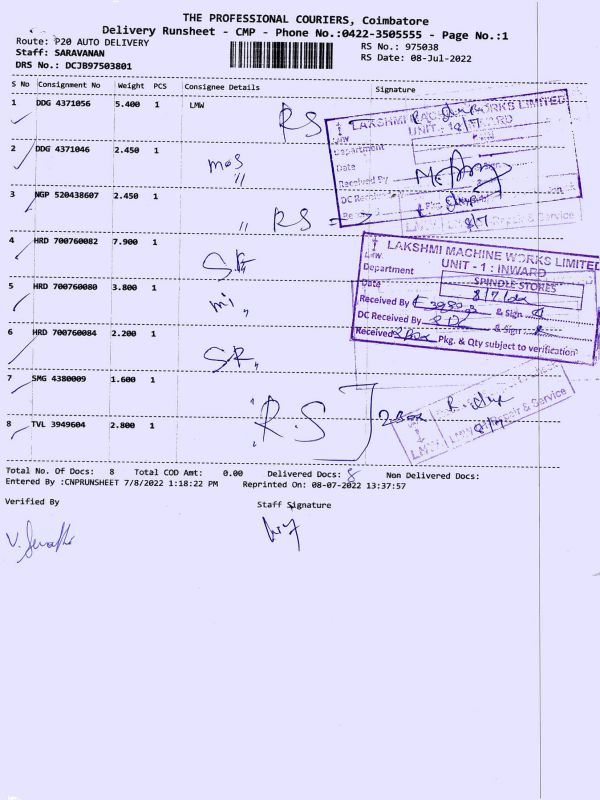 THE PROFESSIONAL COURIERS, Coimbatore
Delivery Runsheet - CMP - Phone No.:0422-3505555 - Page No.:1
Route: P20 AUTO DELIVERY
RS No.: 975038
Staff: SARAVANAN
RS Date: 08-Jul-2022
DRS No.: DCJB97503801
S No Consignment No Weight PCS Consignee Details Signature
1 DDG 4371056 5.400 1 LMW RS
LAKSHMI MACHINE WORKS LIMITED
UNIT - 1 : INWARD
Department
Date
2 DDG 4371046 2.450 1
Received By
DC Received By
3 NGP 520438607 2.450 1 " RS
8/7
4 HRD 700760082 7.900 1 SR
LMW
LAKSHMI MACHINE WORKS LIMITED
UNIT - 1 : INWARD
Department
SPINDLE STORES
Date
5 HRD 700760080 3.800 1
Received By & Sign
DC Received By & Sign
6 HRD 700760084 2.200 1 SR
Received Pkg. & Qty subject to verification
7 SMG 4380009 1.600 1
8 TVL 3949604 2.800 1 R.S
LMW Repair & Service
8/7
Total No. Of Docs: 8 Total COD Amt: 0.00 Delivered Docs: 8 Non Delivered Docs:
Entered By :CNPRUNSHEET 7/8/2022 1:18:22 PM Reprinted On: 08-07-2022 13:37:57
Verified By Staff Signature